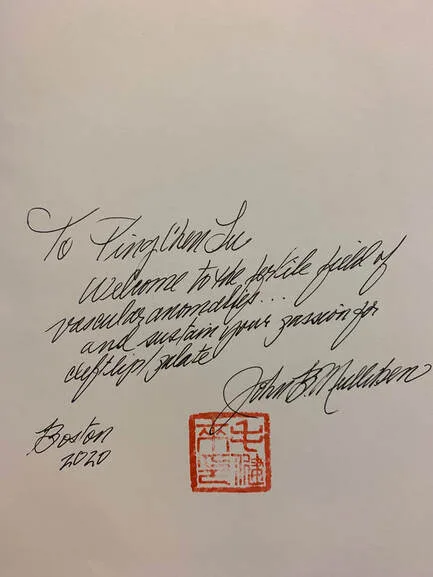 To Ping Chen
Welcome to the fertile field of
vascular anomalies...
and sustain your passion for
cleft lip/palate
John B. Mulliken
Boston
2020